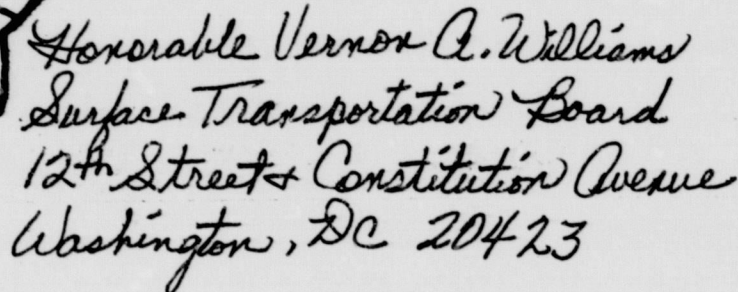 Honorable Vernon A. Williams
Surface Transportation Board
12th Street & Constitution Avenue
Washington, DC 20423